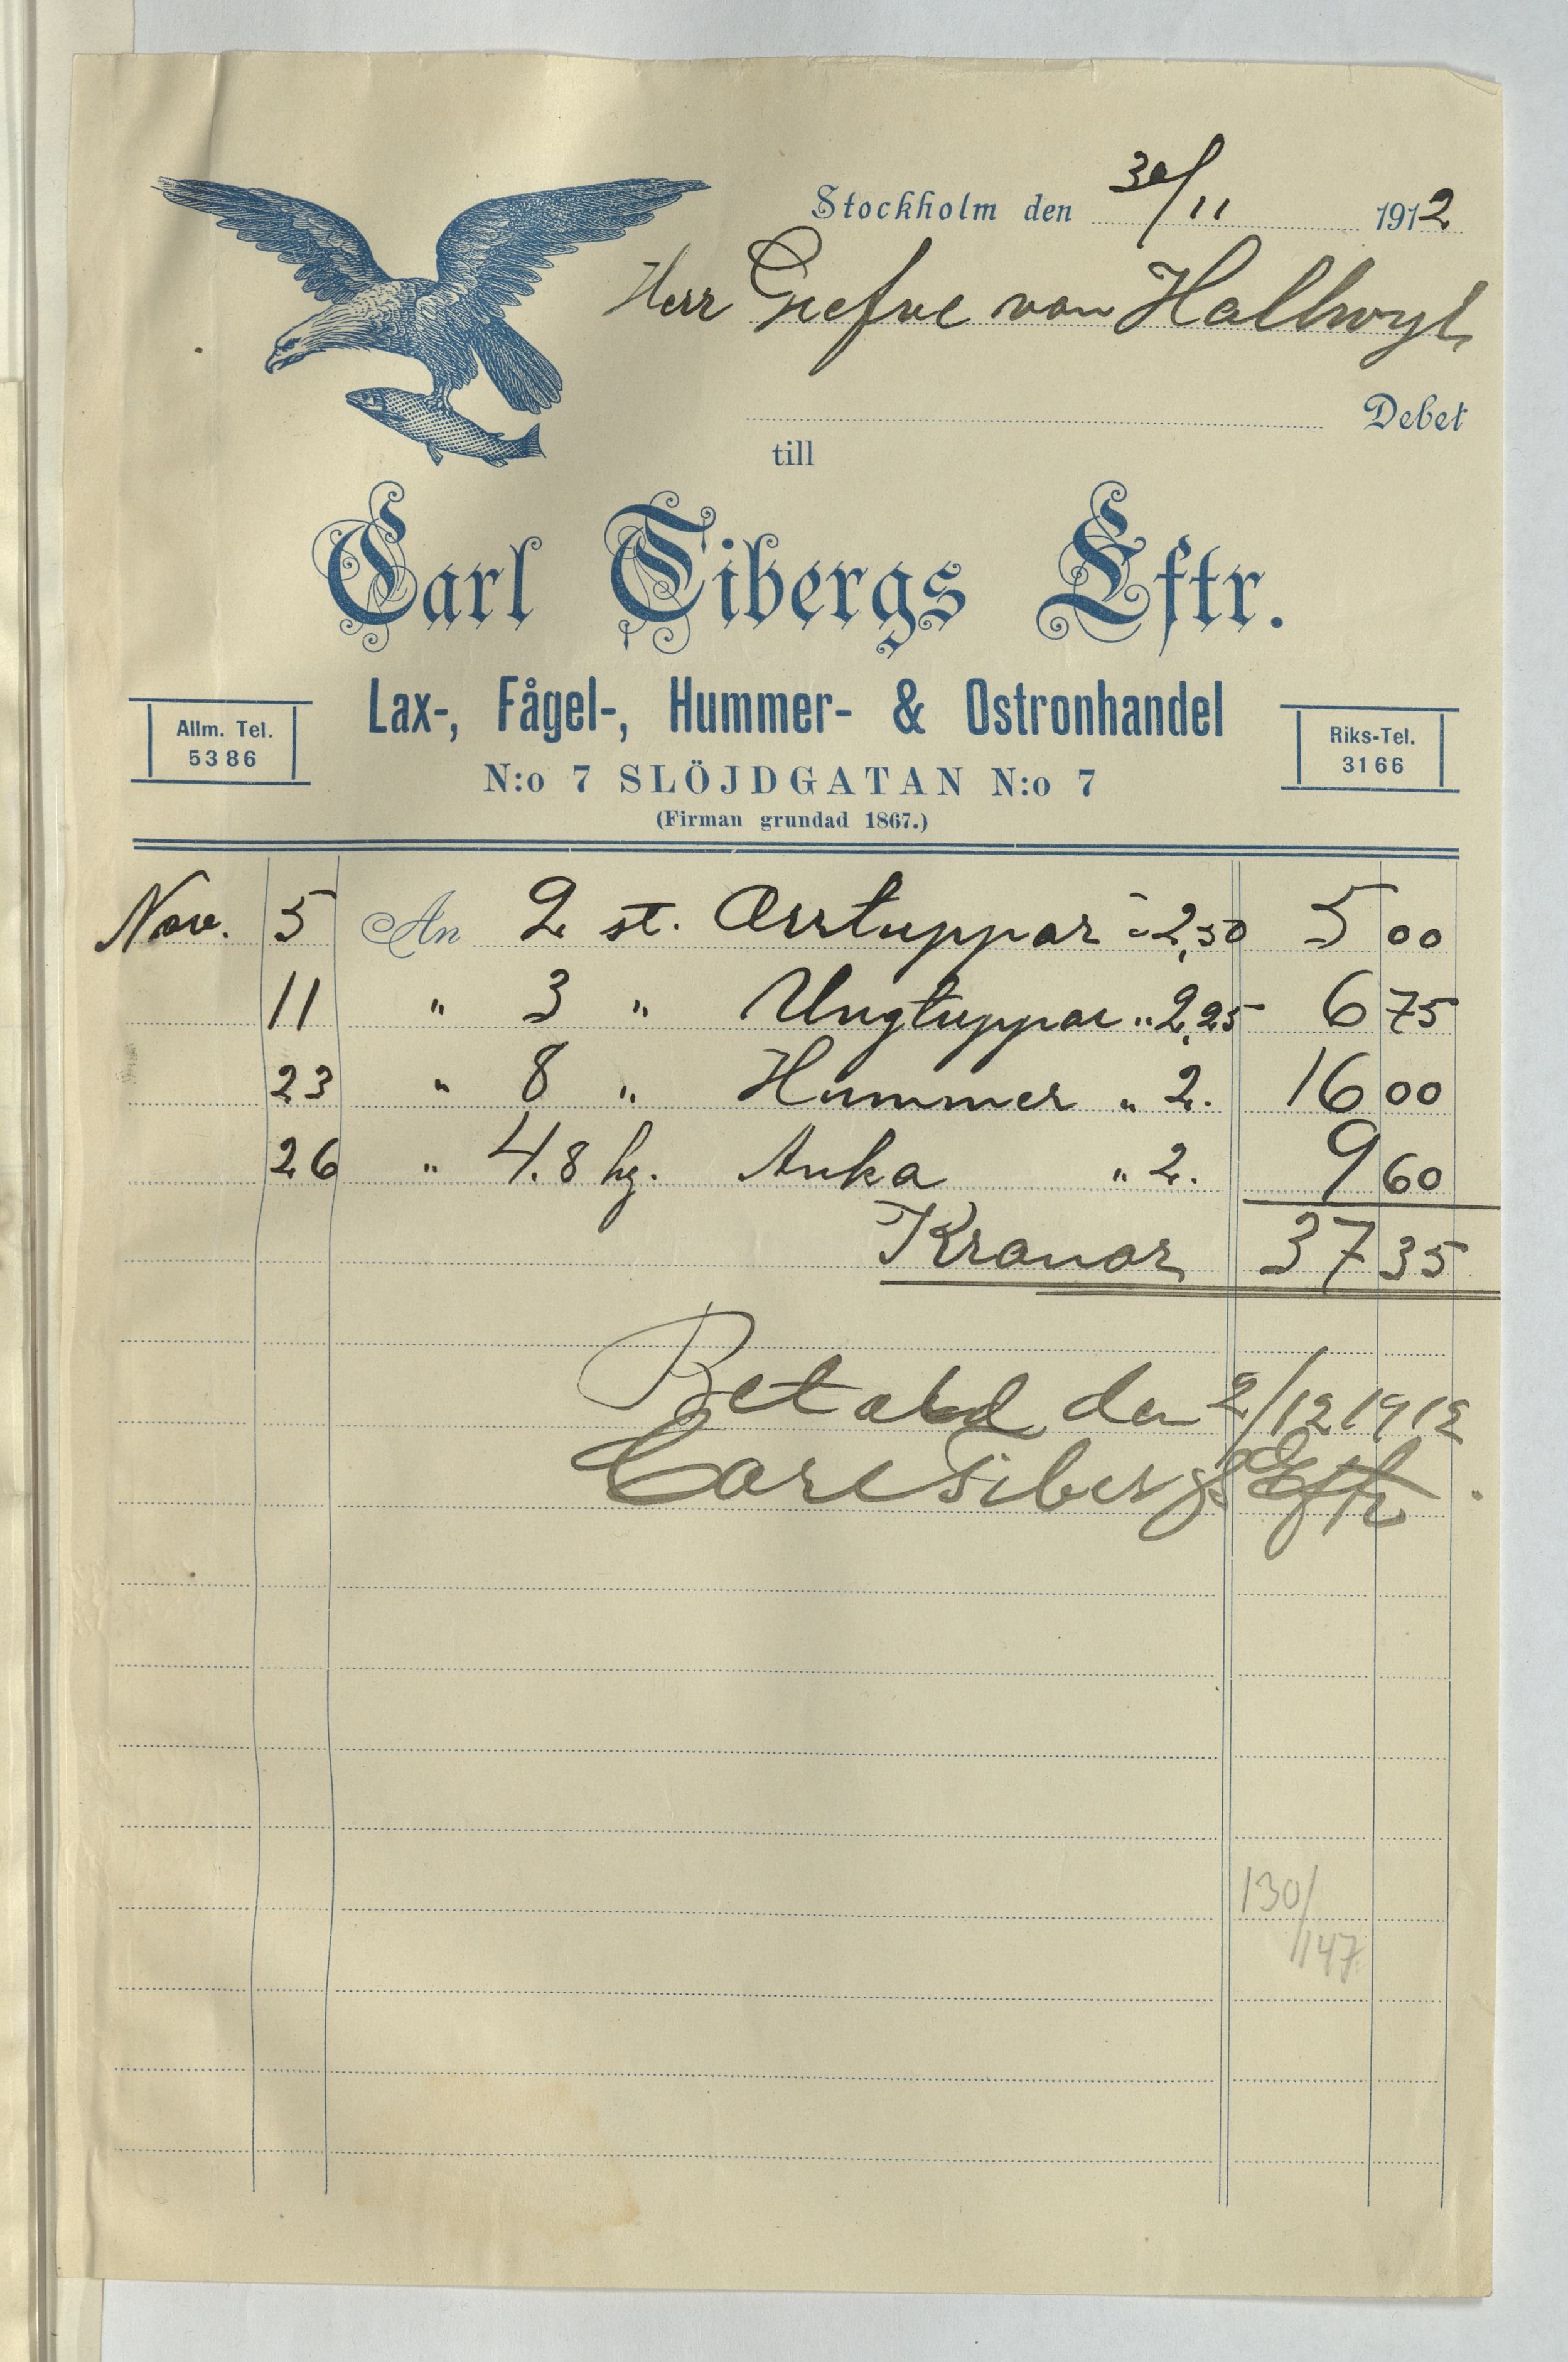 Stockholm den 30/11 1912
Herr Grefve von Hallwyl
Debet
till
Carl Tibergs Eftr.
Lax-, Fågel-, Hummer- & Ostronhandel
Allm. Tel.
5386
Riks-Tel.
3166
N:o 7 SLÖJDGATAN N:o 7
(Firman grundad 1867.)
Nov. 5 An 2 st. Orrtuppar à 2,50 5 00
11 " 3 " Ungtuppar " 2,25 6 75
23 " 8 " Hummer " 2. 16 00
26 " 4.8 hg. Anka " 2. 9 60
Kronor 37 35
Betald den 2/12 1912
Carl Tibergs Eftr.
130/
147